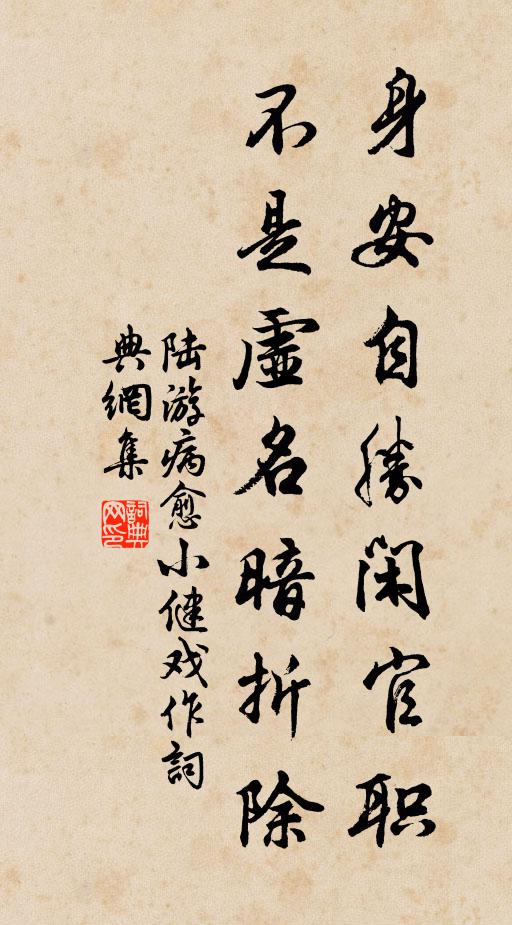 身安自勝闲官职
不是虚名暗折除
陆游病愈小健戏作詞
典網集
詞典网印